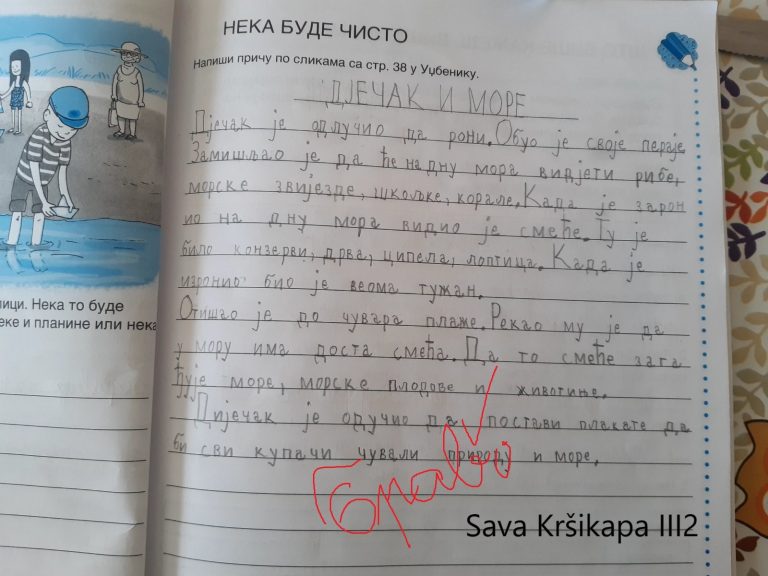 НЕКА БУДЕ ЧИСТО
Напиши причу по сликама са стр. 38 у Уџбенику.
ДЈЕЧАК И МОРЕ
Дјечак је одлучио да рони. Обуо је своје пераје
Замишљао је да ће на дну мора видјети рибе,
морске звијезде, шкољке, корале. Када је зарон
ио на дну мора видио је смеће. Ту је
било конзерви, дрва, ципела, лоптица. Када је
изронио био је веома тужан.
Отишао је до чувара плаже. Рекао му је да
у мору има доста смећа. Да то смеће зага
ђује море, морске плодове и животиње.
Дијечак је одучио да постави плакате да
би сви купачи чували природу и море.
Браво
Sava Kršikapa III2
лици. Нека то буде
еке и планине или нека